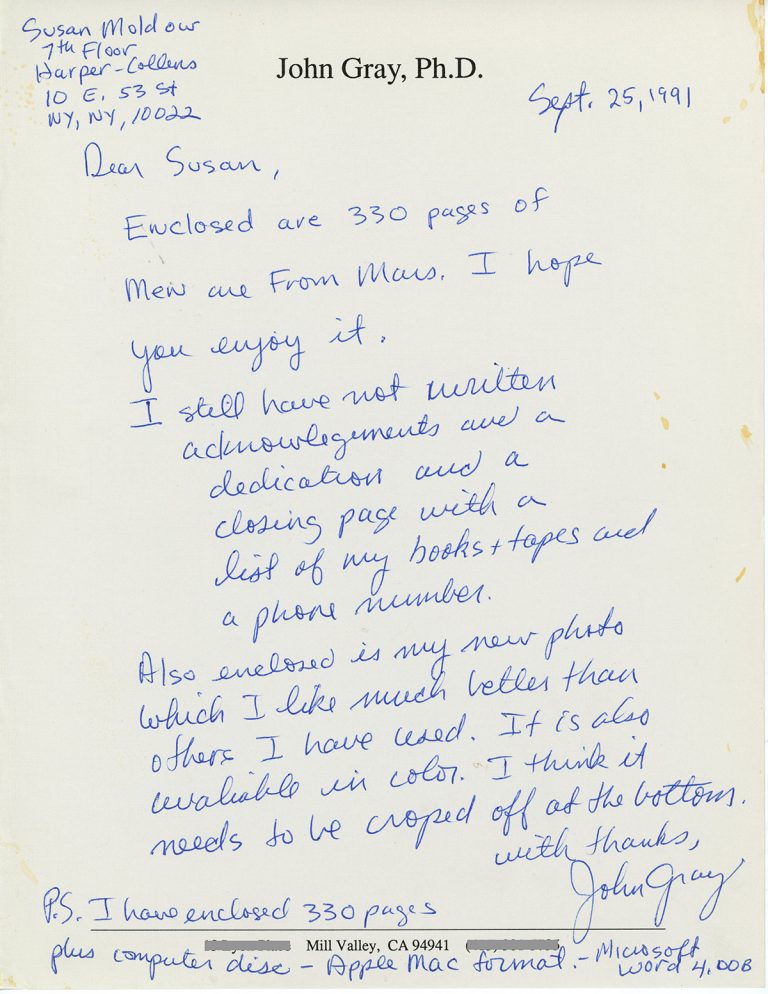 Susan Moldow
7th Floor
Harper-Collins
10 E. 53 St
NY, NY, 10022
John Gray, Ph.D.
Sept. 25, 1991
Dear Susan,
Enclosed are 330 pages of
Men are From Mars. I hope
you enjoy it.
I still have not written
acknowlegements and a
dedication and a
closing page with a
list of my books + tapes and
a phone number.
Also enclosed is my new photo
which I like much better than
others I have used. It is also
avaliable in color. I think it
needs to be croped off at the bottom.
with thanks,
John Gray
P.S. I have enclosed 330 pages
Mill Valley, CA 94941
plus computer disc - Apple Mac format. - Microsoft
Word 4.00B